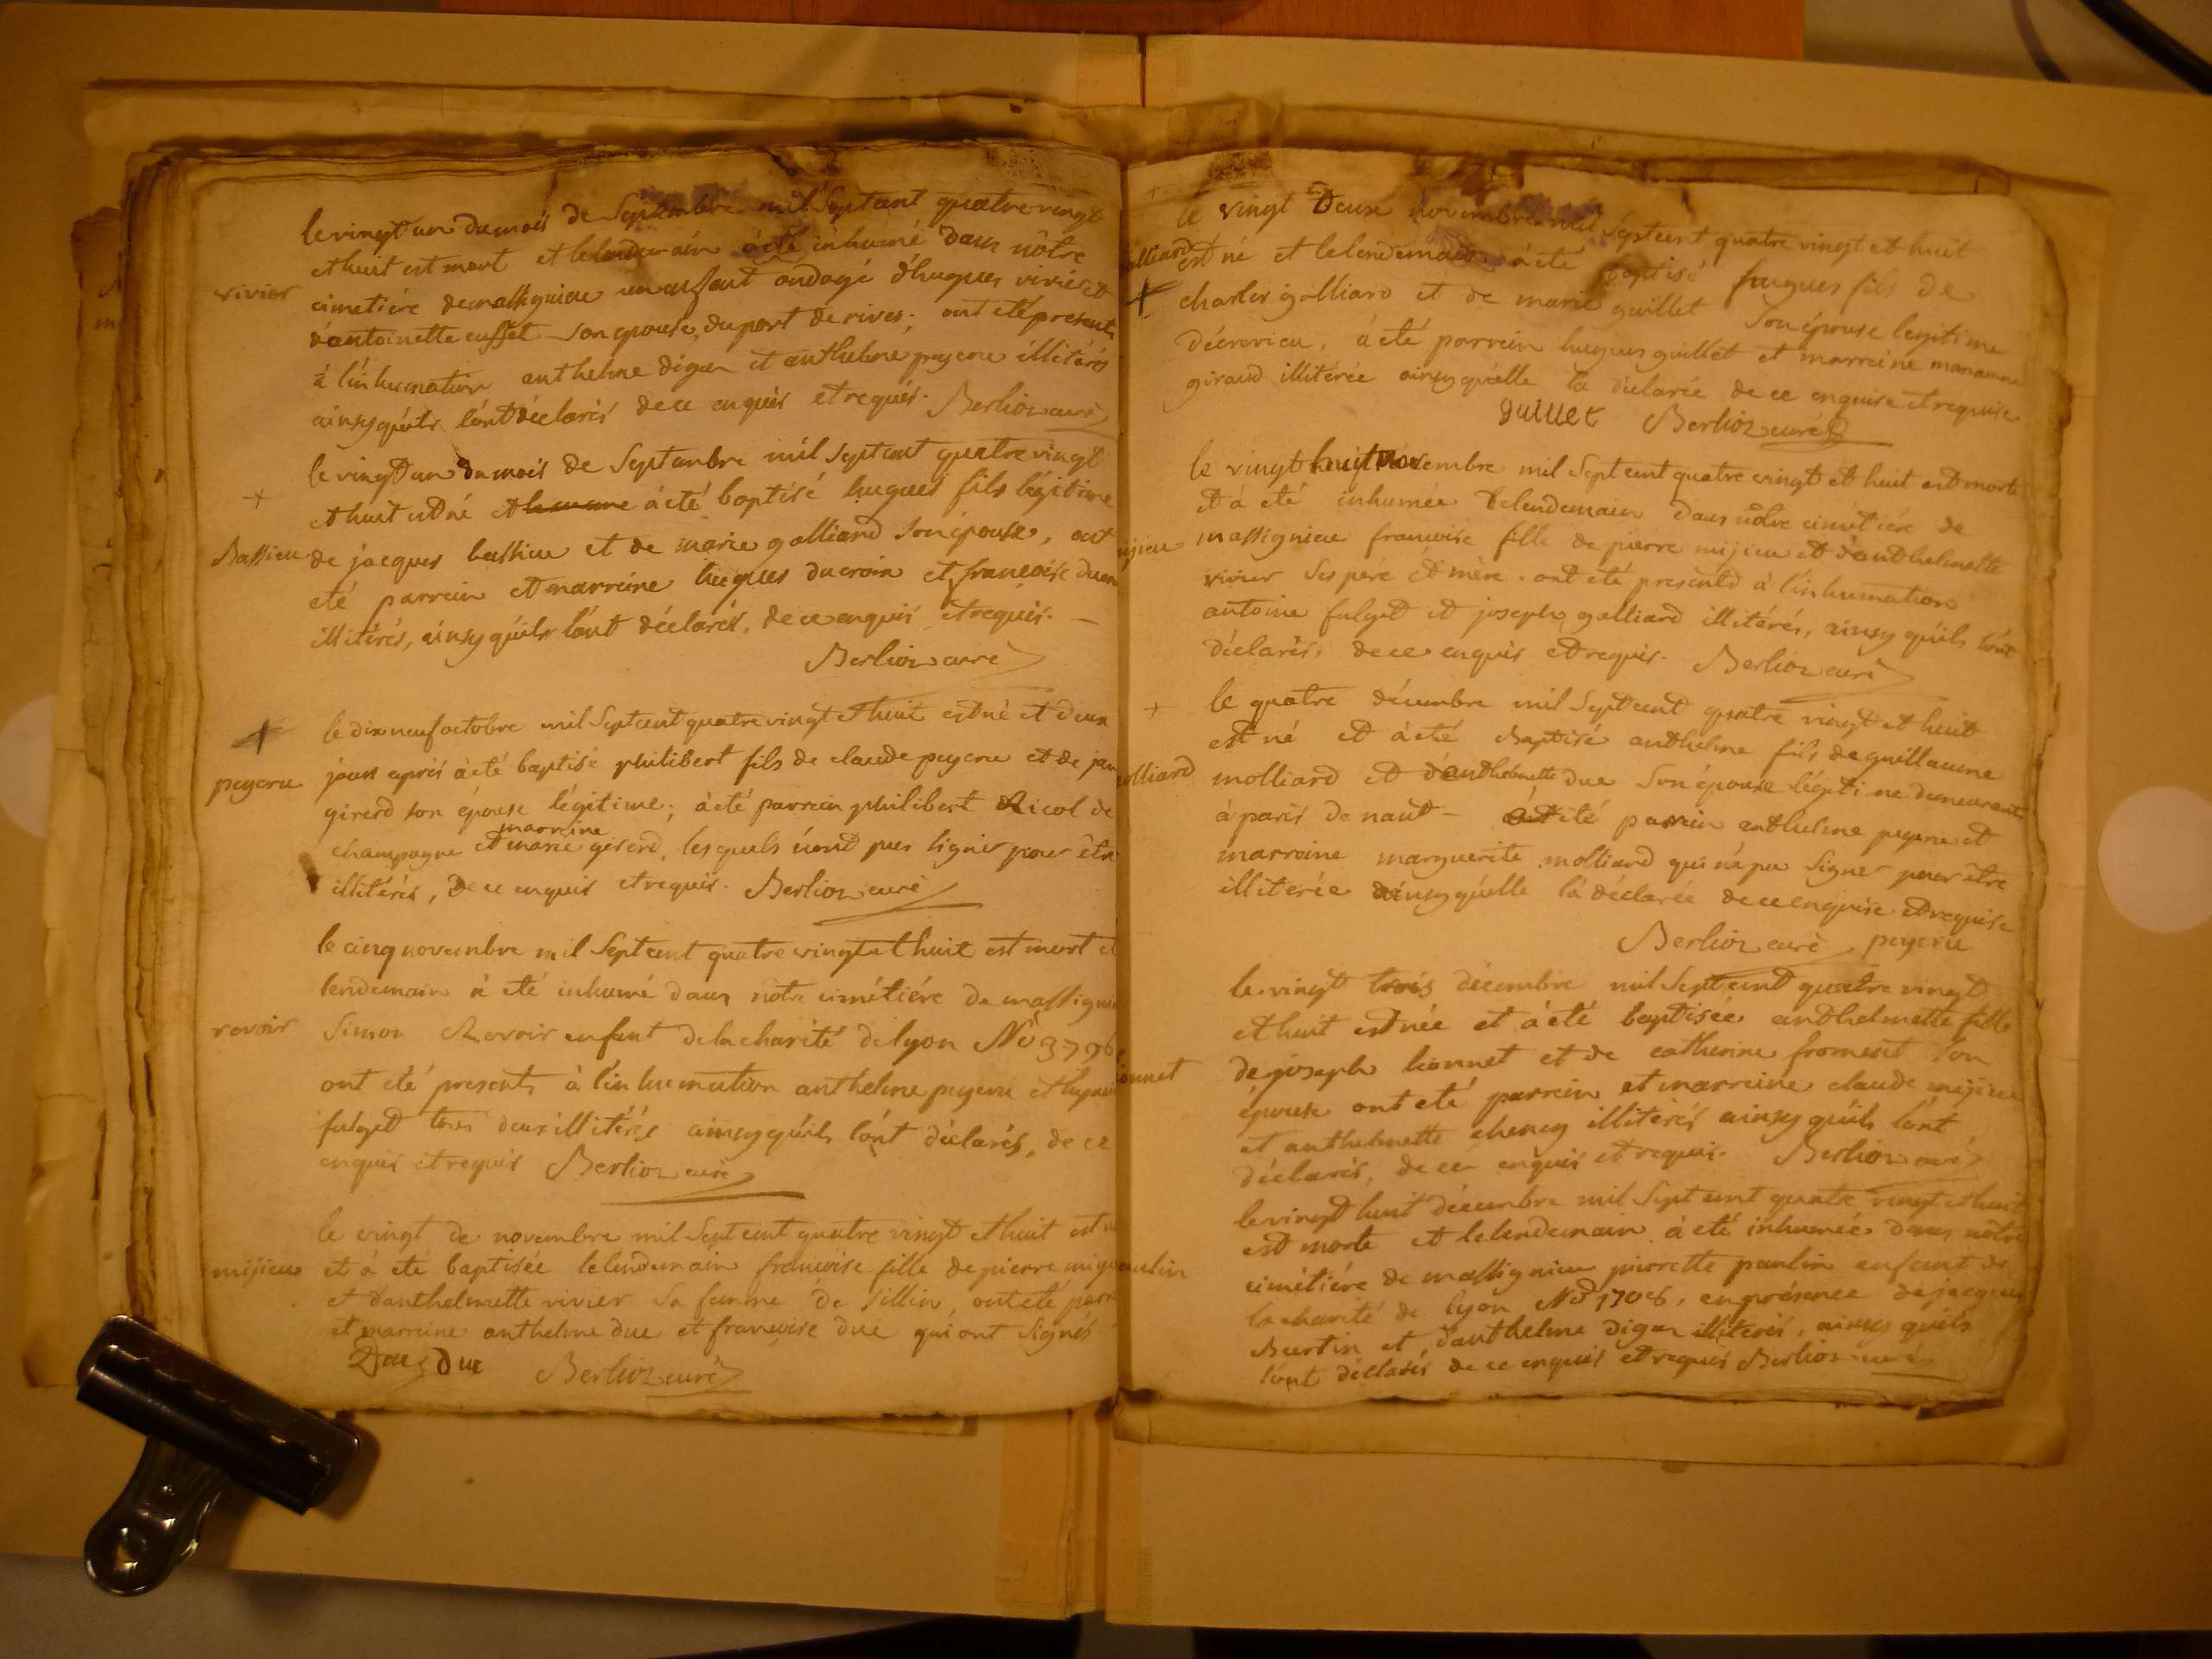 le vingt un du mois de Septembre mil Sept cent quatre vingt
et huit est mort et le lendemain à eté inhumé dans nôtre
vivier
cimetiére de massignieu un enfant ondoyé d'hugues vivier et
d'antoinette cusset son epouse, du port de rives; ont eté presents
à l'inhumation anthelme digen et anthelme peyeru illitérés
ainsy qu'ils l'ont déclarés de ce enquis et requis. Berlioz curé
le vingt un du mois de Septembre mil Sept cent quatre vingt
+
et huit est né et à eté baptisé hugues fils légitime
Bassieu
de jacques bassieu et de marie galliard son épouse, ont
eté parrein et marreine hugues ducroin et francoise
illitérés, ainsy qu'ils l'ont déclarés, de ce enquis et requis. —
Berlioz curé
le dix neuf octobre mil Sept cent quatre vingt et huit est né et deux
+
peyeru
jours aprés à eté baptisé philibert fils de claude peyeru et de
girerd son épouse légitime; à eté parrein philibert Ricol de
champagne et marreine marie gererd, lesquels n'ont pus signer pour être
illitérés, de ce enquis et requis. Berlioz curé
le cinq novembre mil Sept cent quatre vingt et huit est mort et
lendemain à eté inhumé dans notre cimétiére de massignieu
revoir
Simon Revoir enfant de la charité de lyon No 3796
ont eté presents à l'inhumation anthelme peyeru et hugues
fulget tous deux illitérés ainsy qu'ils l'ont déclarés, de ce
enquis et requis Berlioz curé
le vingt de novembre mil Sept cent quatre vingt et huit est
mijieu
et à eté baptisée le lendemain francoise fille de pierre
et d'anthelmette vivier sa femme de sillin, ont eté
et marreine anthelme duc et francoise duc qui ont signés
Duc duc Berlioz curé
+
le vingt deux novembre mil Sept cent quatre vingt et huit
galliard
est né et le lendemain à eté baptisé hugues fils de
+
charles galliard et de marie guillet Son épouse legitime
décrovieu, à eté parrein hugues guillet et marreine marianne
giraud illitérée ainsy qu'elle l'a déclarée de ce enquise et requise
guillet Berlioz curé
le vingt huit novembre mil Sept cent quatre vingt et huit est morte
et à eté inhumée le lendemain dans nôtre cimétiére de
mijieu
massignieu francoise fille de pierre mijieu et d'anthelmette
vivier ses pére et mére. ont eté presents à l'inhumation
antoine fulget et joseph galliard illitérés, ainsy qu'ils l'ont
déclarés, de ce enquis et requis. Berlioz curé
+
le quatre décembre mil Sept cent quatre vingt et huit
est né et à eté baptisé anthelme fils de guillaume
molliard
molliard et d'anthelmette duc Son épouse légitime demeurants
à paris de naut — à eté parrein anthelme peyeru et
marreine marguerite molliard qui n'a pu signer pour être
illiterée ainsy qu'elle l'a déclarée de ce enquise et requise
Berlioz curé peyeru
le vingt trois décembre mil Sept cent quatre vingt
et huit est née et à eté baptisée anthelmette fille
lionnet
de joseph lionnet et de catherine froment Son
épouse ont eté parrein et marreine claude mijieu
et anthelmette chency illitérés ainsy qu'ils l'ont
déclarés, de ce enquis et requis. Berlioz curé
le vingt huit décembre mil Sept cent quatre vingt et huit
est morte et le lendemain à eté inhumée dans nôtre
paulin
cimétiére de massignieu pierrette paulin enfant de
la charité de lyon No 1708, en présence de jacques
Burtin et d'anthelme digen illiterés, ainsy qu'ils
l'ont déclarés de ce enquis et requis Berlioz curé